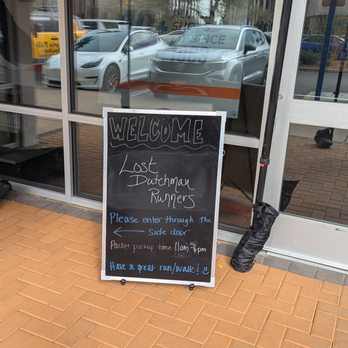 WELCOME
Lost
Dutchman
Runners
Please enter through the
← side door
Packet pickup time 11am-6pm
Have a great run/walk!